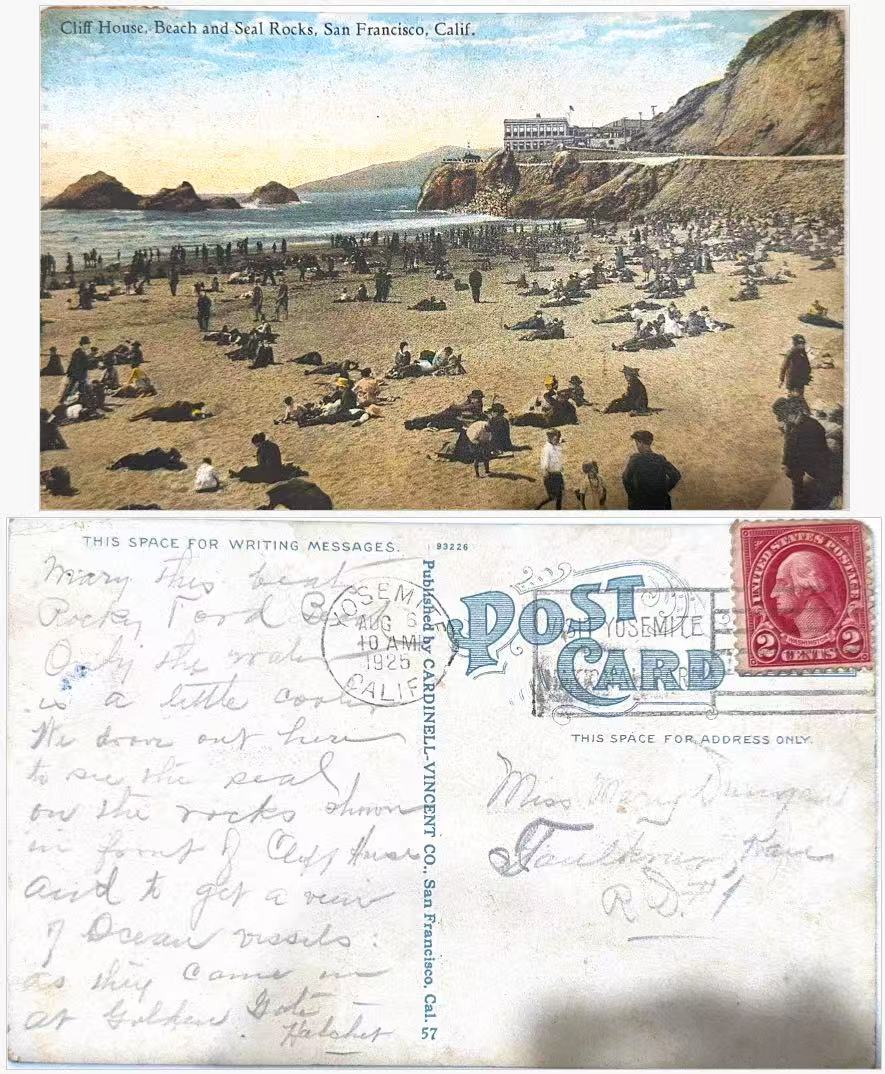 Cliff House, Beach and Seal Rocks, San Francisco, Calif.
THIS SPACE FOR WRITING MESSAGES.
93226
Mary this beats
Rocky Ford
Only the water
is a little cooler
We drove out here
to see the seal
on the rocks shown
in front of Cliff House
and to get a view
of Ocean vissels
as they come in
at Golden Gate
Published by CARDINELL-VINCENT CO., San Francisco, Cal.
57
YOSEMITE
AUG 6
10 AM
1925
CALIF
POST
CARD
YOSEMITE
UNITED STATES POSTAGE
WASHINGTON
2 CENTS 2
THIS SPACE FOR ADDRESS ONLY.
Miss Mary
Faulkner Kans
R.D. #1